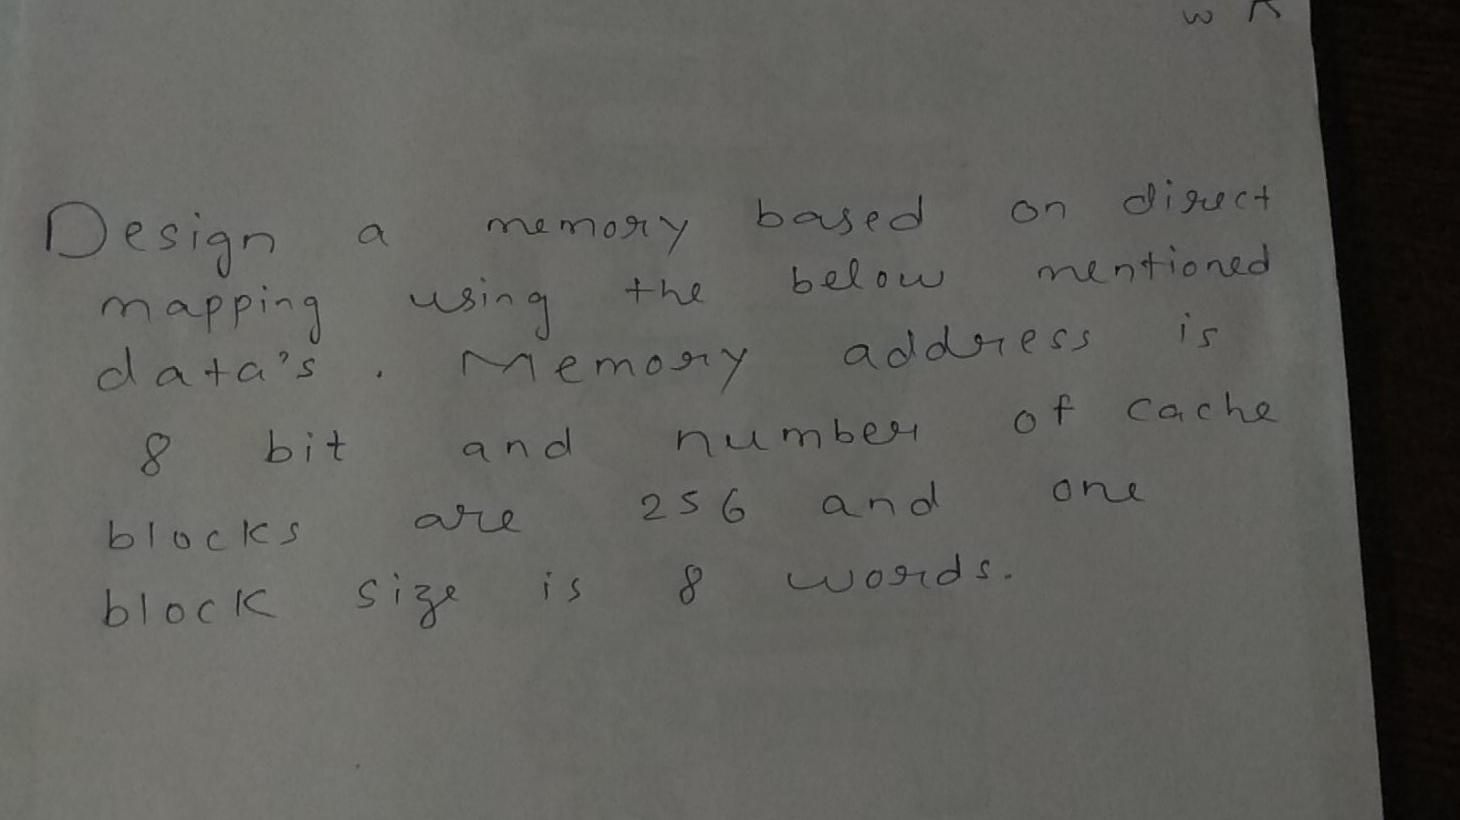 w
Design a memory based on direct
mapping using the below mentioned
data's. Memory address is
8 bit and number of cache
blocks are 256 and one
block size is 8 words.